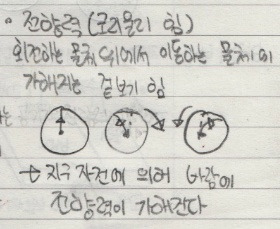 • 전향력 (코리올리 힘)
회전하는 물체 위에서 이동하는 물체에
가해지는 겉보기 힘
→ 지구 자전에 의해 바람에
전향력이 가해진다